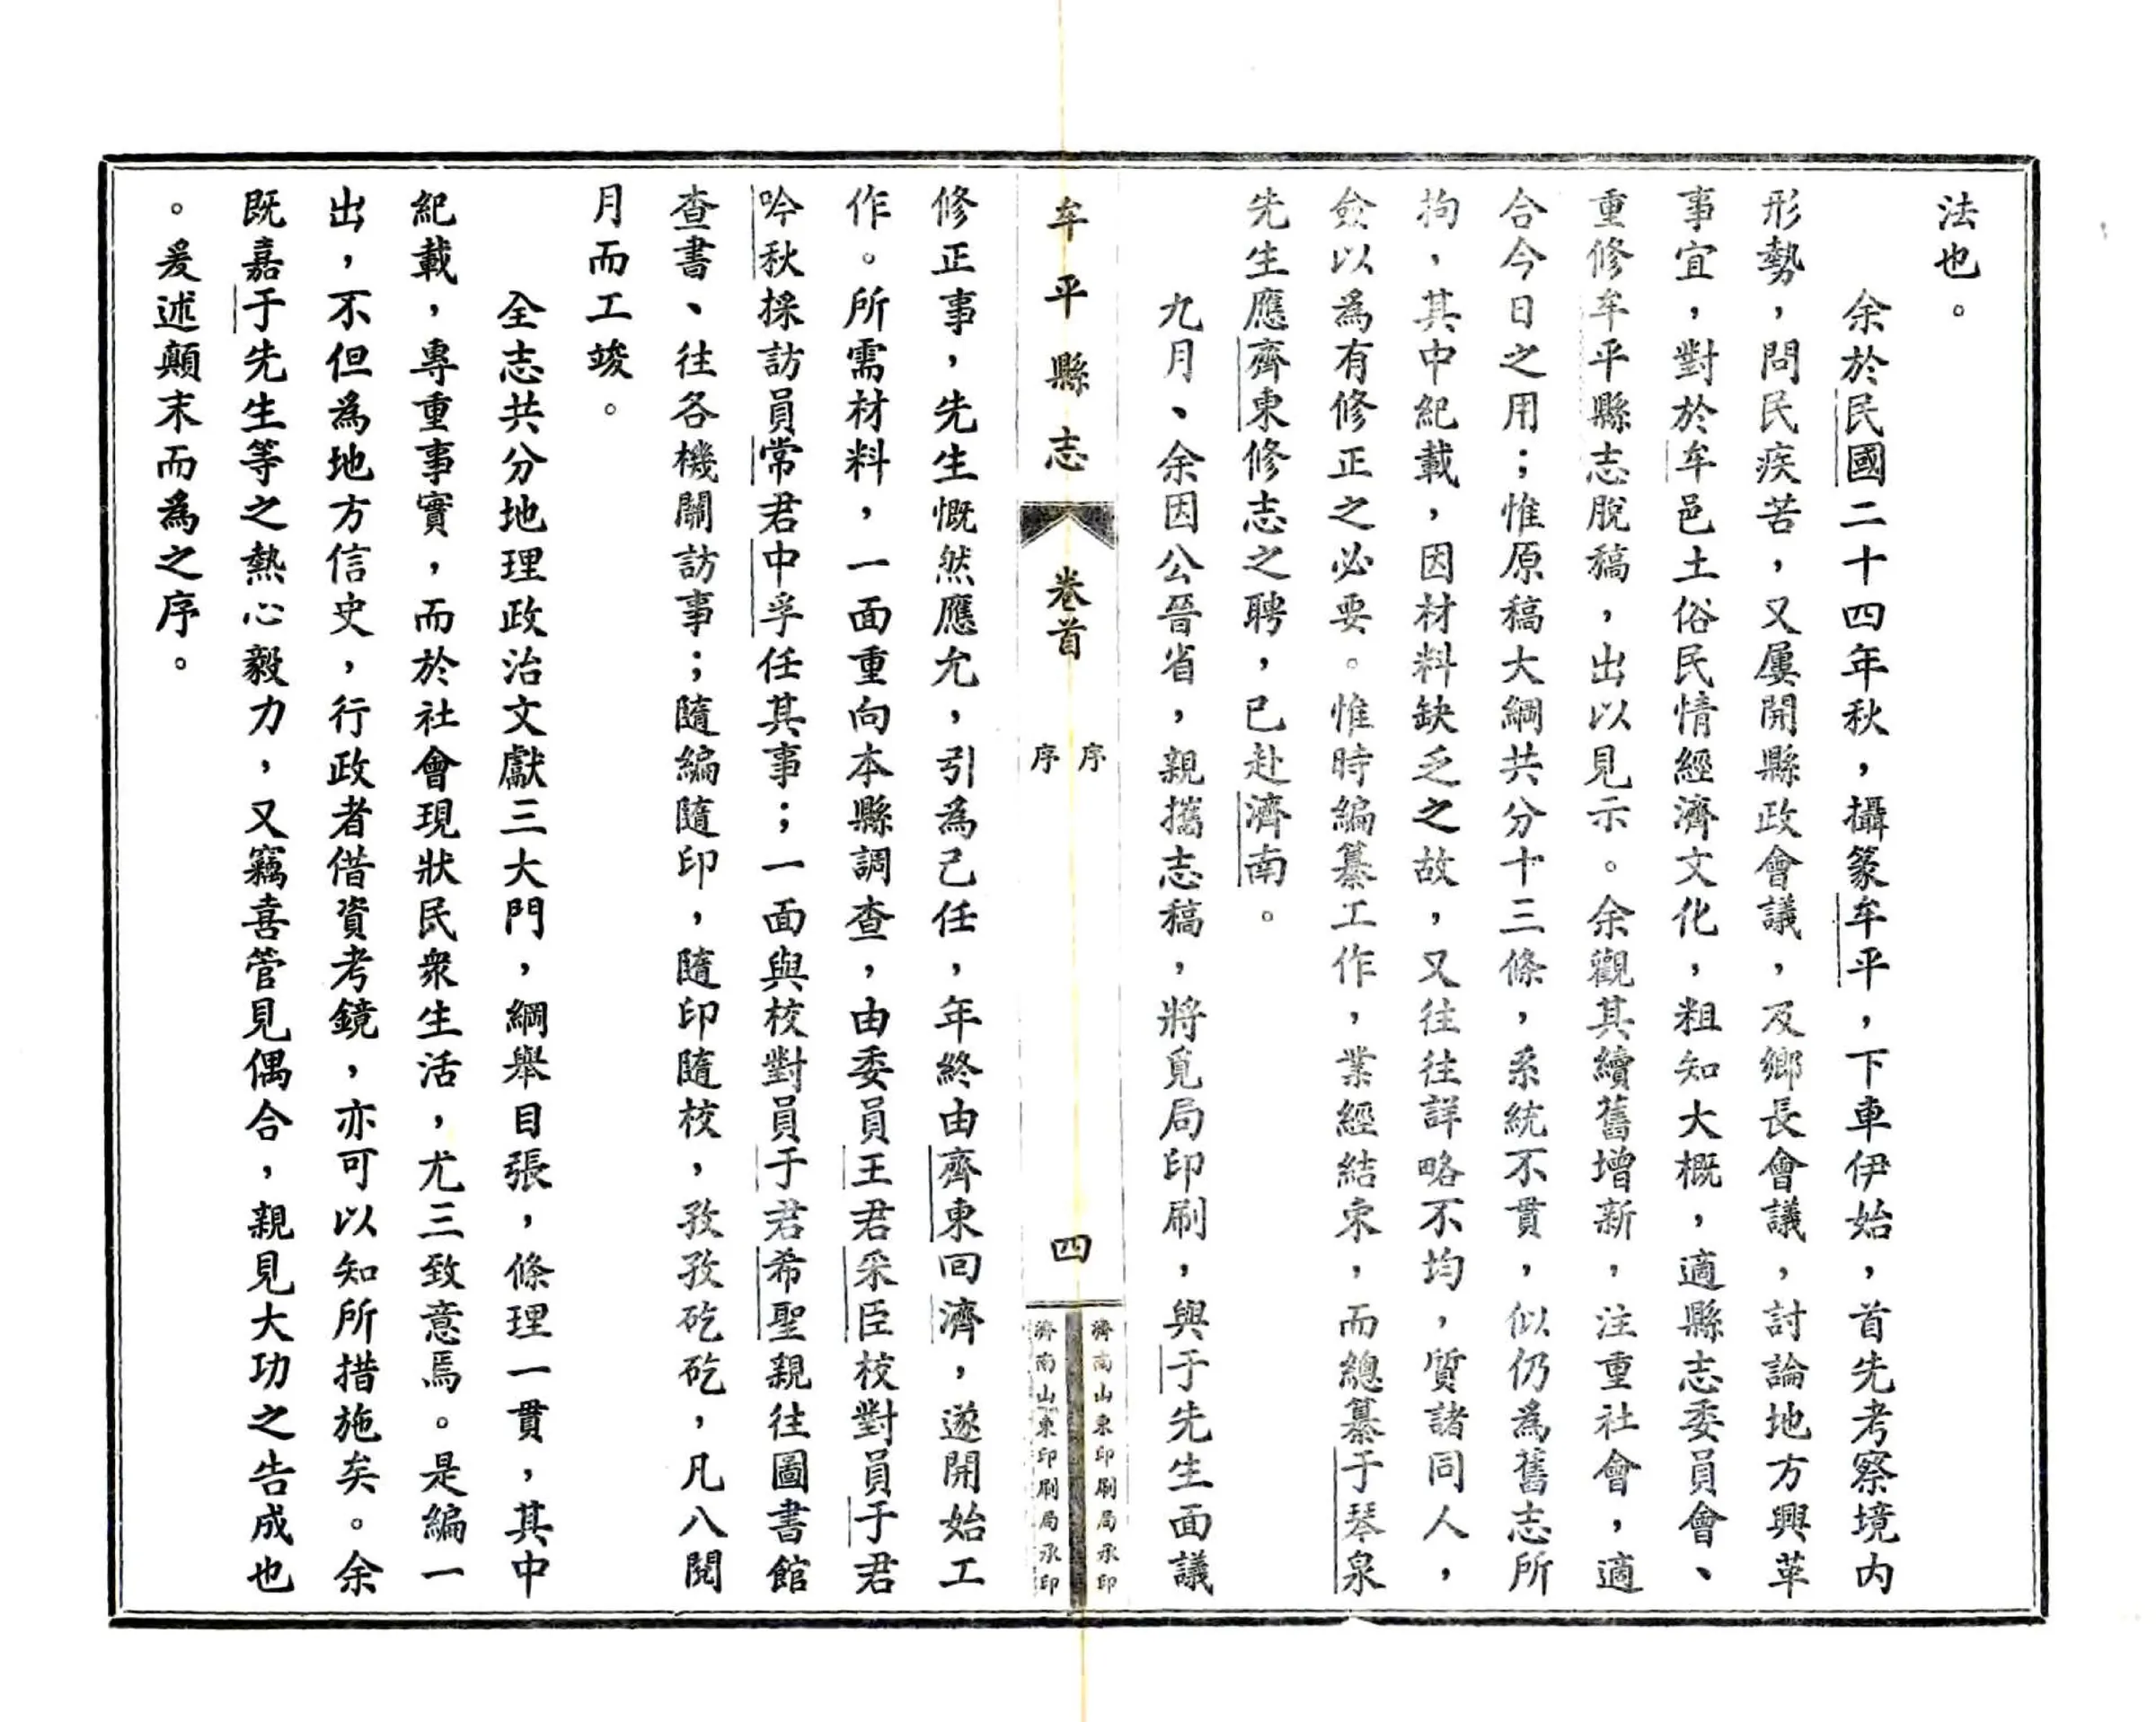 法也。
余於民國二十四年秋，攝篆牟平，下車伊始，首先考察境內
形勢，問民疾苦，又屢開縣政會議，及鄉長會議，討論地方興革
事宜，對於牟邑土俗民情經濟文化，粗知大概，適縣志委員會、
重修牟平縣志脫稿，出以見示。余觀其續舊增新，注重社會，適
合今日之用；惟原稿大綱共分十三條，系統不貫，似仍為舊志所
拘，其中紀載，因材料缺乏之故，又往往詳略不均，質諸同人，
僉以為有修正之必要。惟時編纂工作，業經結束，而總纂于琴泉
先生應齊東修志之聘，已赴濟南。
九月、余因公晉省，親攜志稿，將覓局印刷，與于先生面議
牟平縣志
卷首
序
序
四
濟南山東印刷局承印
濟南山東印刷局承印
修正事，先生慨然應允，引為己任，年終由齊東回濟，遂開始工
作。所需材料，一面重向本縣調查，由委員王君采臣校對員于君
吟秋採訪員常君中孚任其事；一面與校對員于君希聖親往圖書館
查書、往各機關訪事；隨編隨印，隨印隨校，孜孜矻矻，凡八閱
月而工竣。
全志共分地理政治文獻三大門，綱舉目張，條理一貫，其中
紀載，專重事實，而於社會現狀民衆生活，尤三致意焉。是編一
出，不但為地方信史，行政者借資考鏡，亦可以知所措施矣。余
既嘉于先生等之熱心毅力，又竊喜管見偶合，親見大功之告成也
。爰述顛末而為之序。